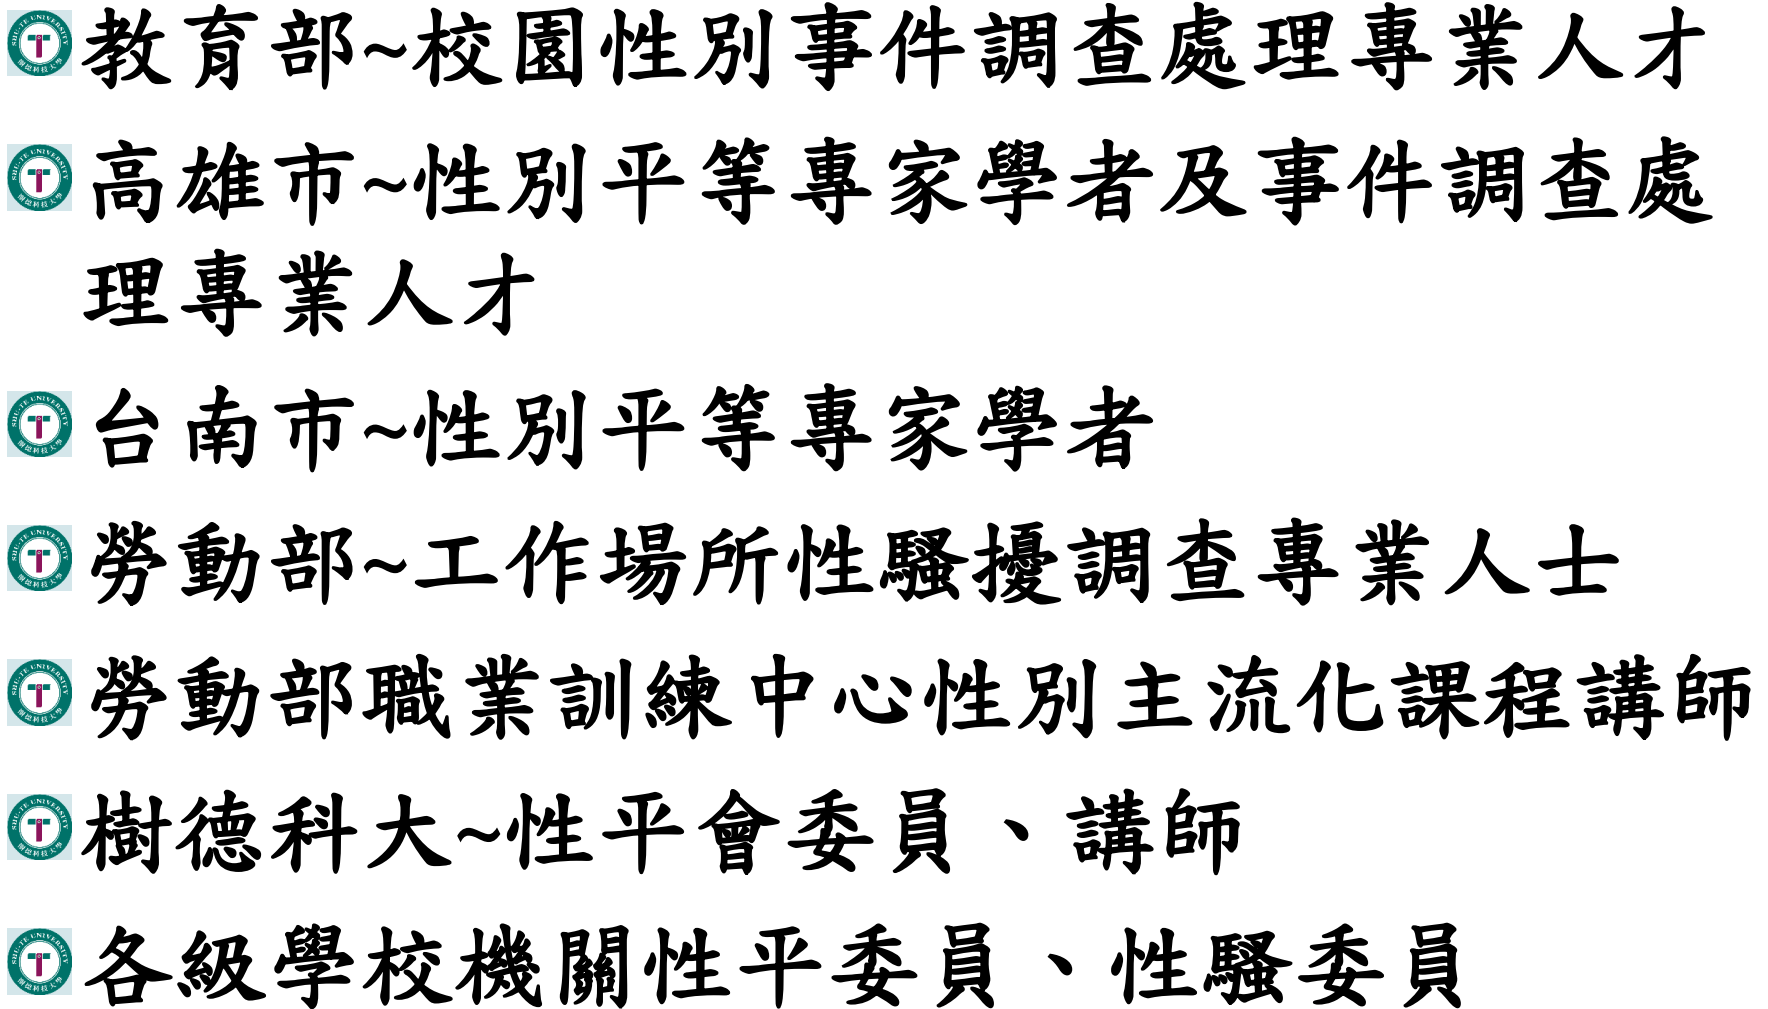 教育部~校園性別事件調查處理專業人才
高雄市~性別平等專家學者及事件調查處
理專業人才
台南市~性別平等專家學者
勞動部~工作場所性騷擾調查專業人士
勞動部職業訓練中心性別主流化課程講師
樹德科大~性平會委員、講師
各級學校機關性平委員、性騷委員